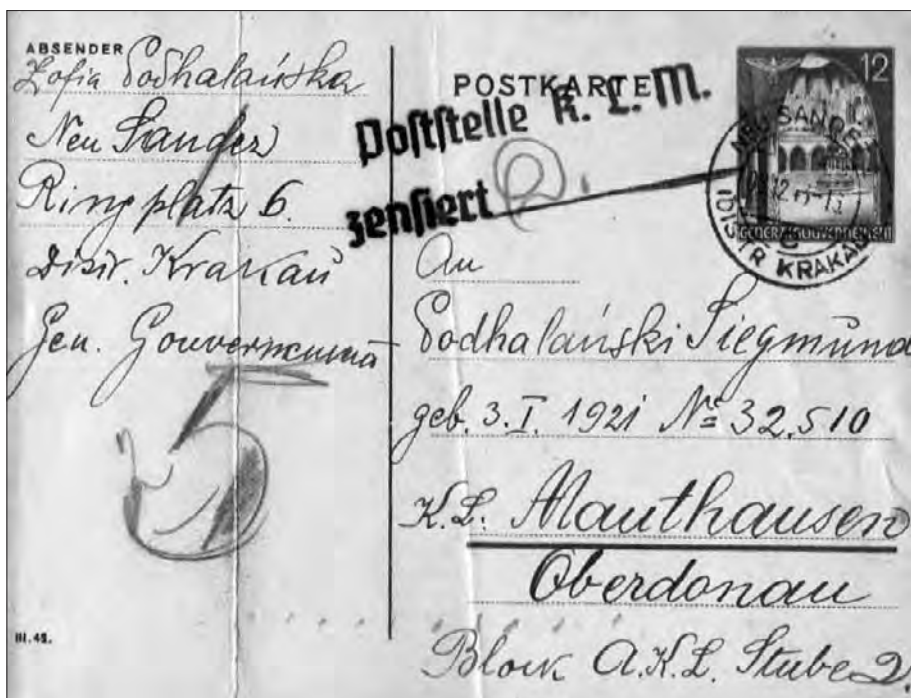 ABSENDER
Zofia Podhalańska
Neu Sandez
Ringplatz 6.
Distr. Krakau
Gen. Gouvernement
5
III.43.
POSTKARTE
Poststelle K. L. M.
zensiert
12
GENERALGOUVERNEMENT
NEU SANDEZ
(DISTR KRAKAU)
An
Podhalański Siegmund
geb. 3.I. 1921 Nr 32.510
K.L. Mauthausen
Oberdonau
Block A.K.L. Stube 2.